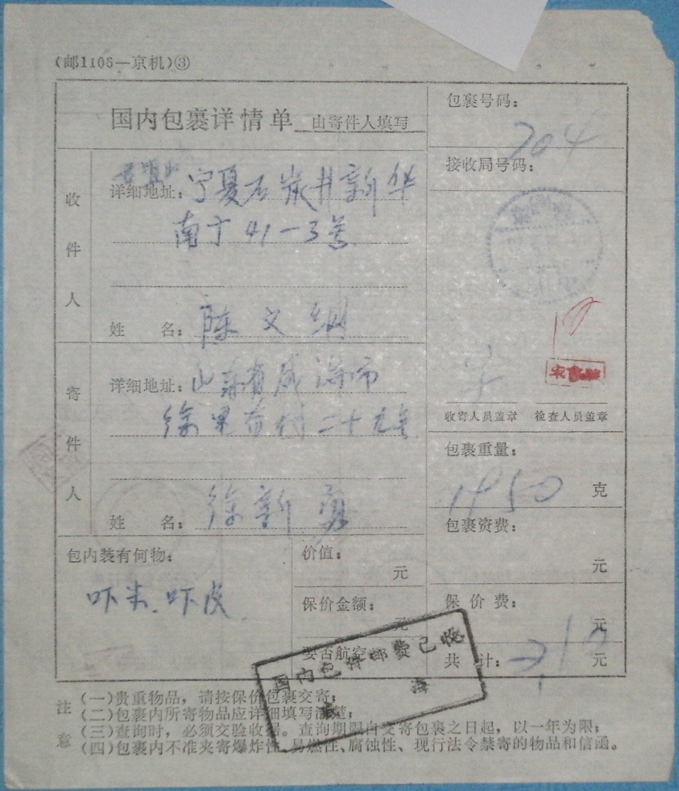 (邮1105—京机)③
国内包裹详情单 由寄件人填写
包裹号码：
204
接收局号码：
收件人
详细地址：宁夏石炭井新华
南于41-3号
姓 名：陈文纲
寄件人
详细地址：山东省威海市
徐家疃村二十九号
姓 名：徐新勇
收寄人员盖章 检查人员盖章
包裹重量：
1450 克
包裹资费：
元
包内装有何物：
吓米、吓皮
价值：
元
保价金额：
元
保价费：
元
共 计：
元
国内包件邮费已收
威 海
注意
(一)贵重物品，请按保价包裹交寄；
(二)包裹内所寄物品应详细填写清楚；
(三)查询时，必须交验收据。查询期限自交寄包裹之日起，以一年为限；
(四)包裹内不准夹寄爆炸性、易燃性、腐蚀性、现行法令禁寄的物品和信函。